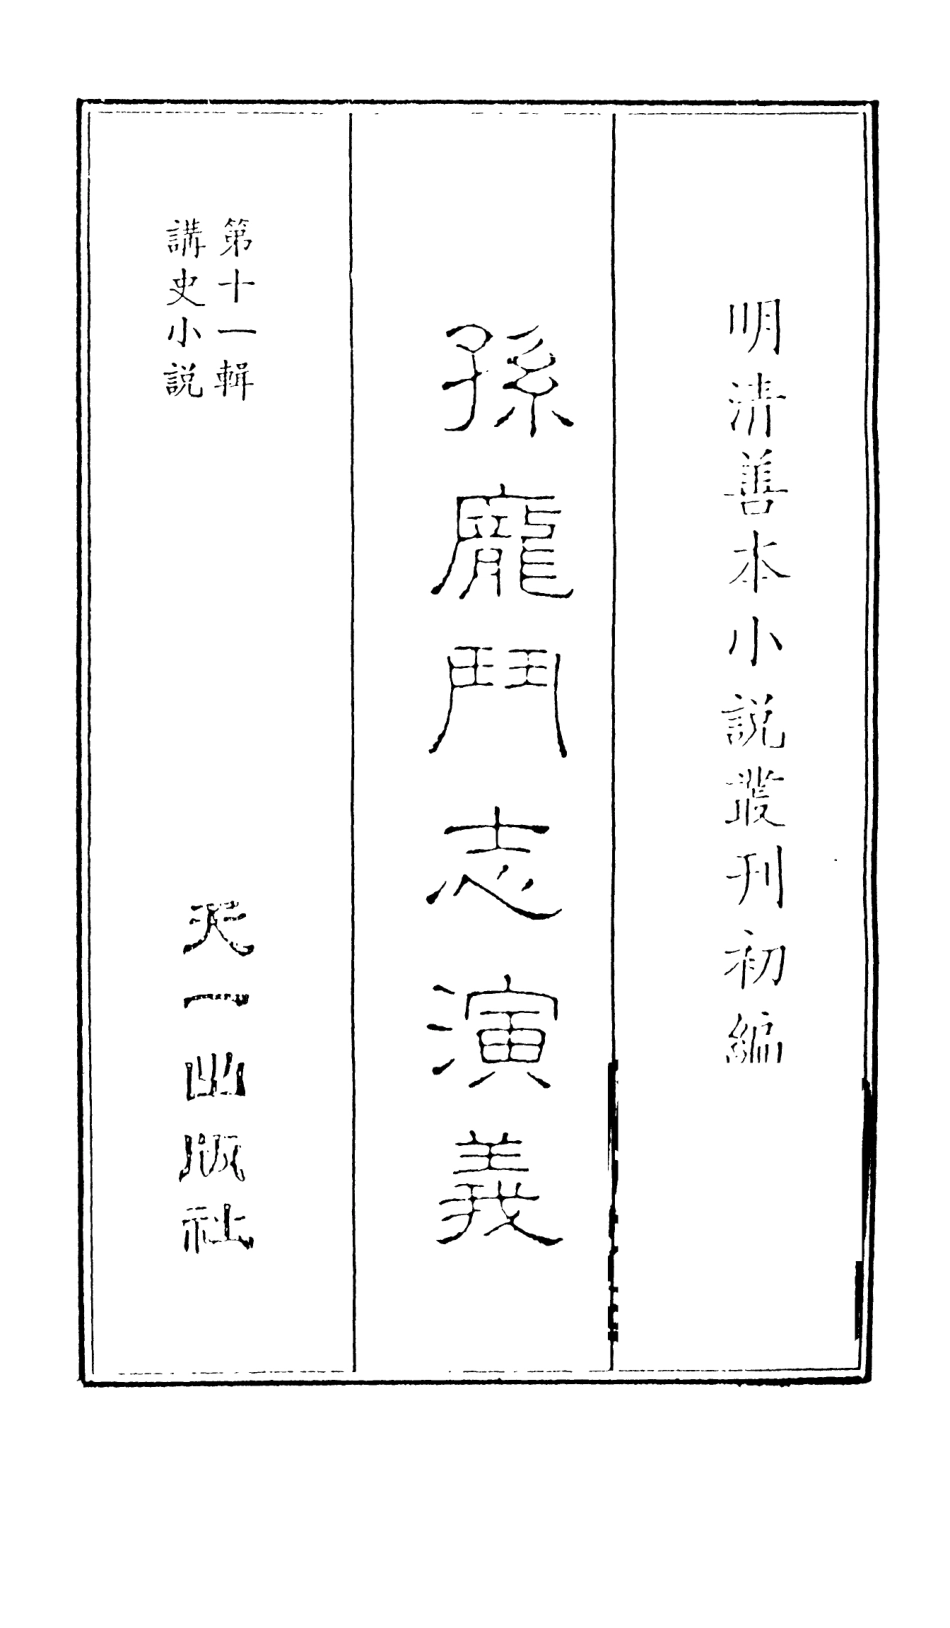 明清善本小説叢刊初編
孫龐鬥志演義
第十一輯
講史小説
天一出版社